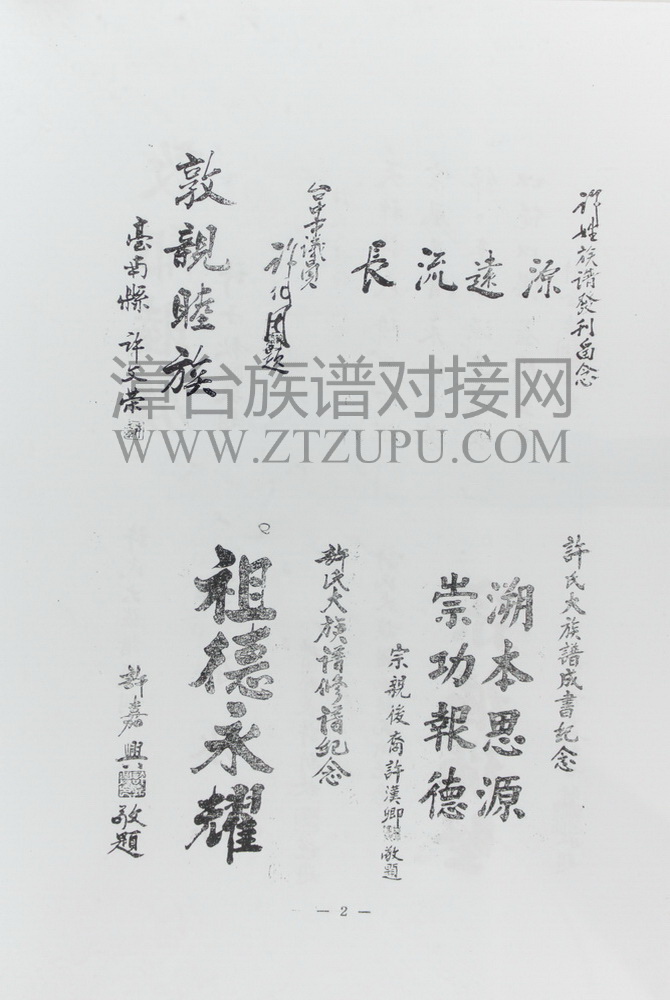 許姓族譜發刊留念
源遠流長
台中市議員
題
敦親睦族
臺南縣 許文榮
漳台族谱对接网
WWW.ZTZUPU.COM
許氏大族譜成書紀念
溯本思源
崇功報德
宗親後裔許漢卿敬題
許氏大族譜修譜紀念
祖德永耀
許嘉興敬題
— 2 —